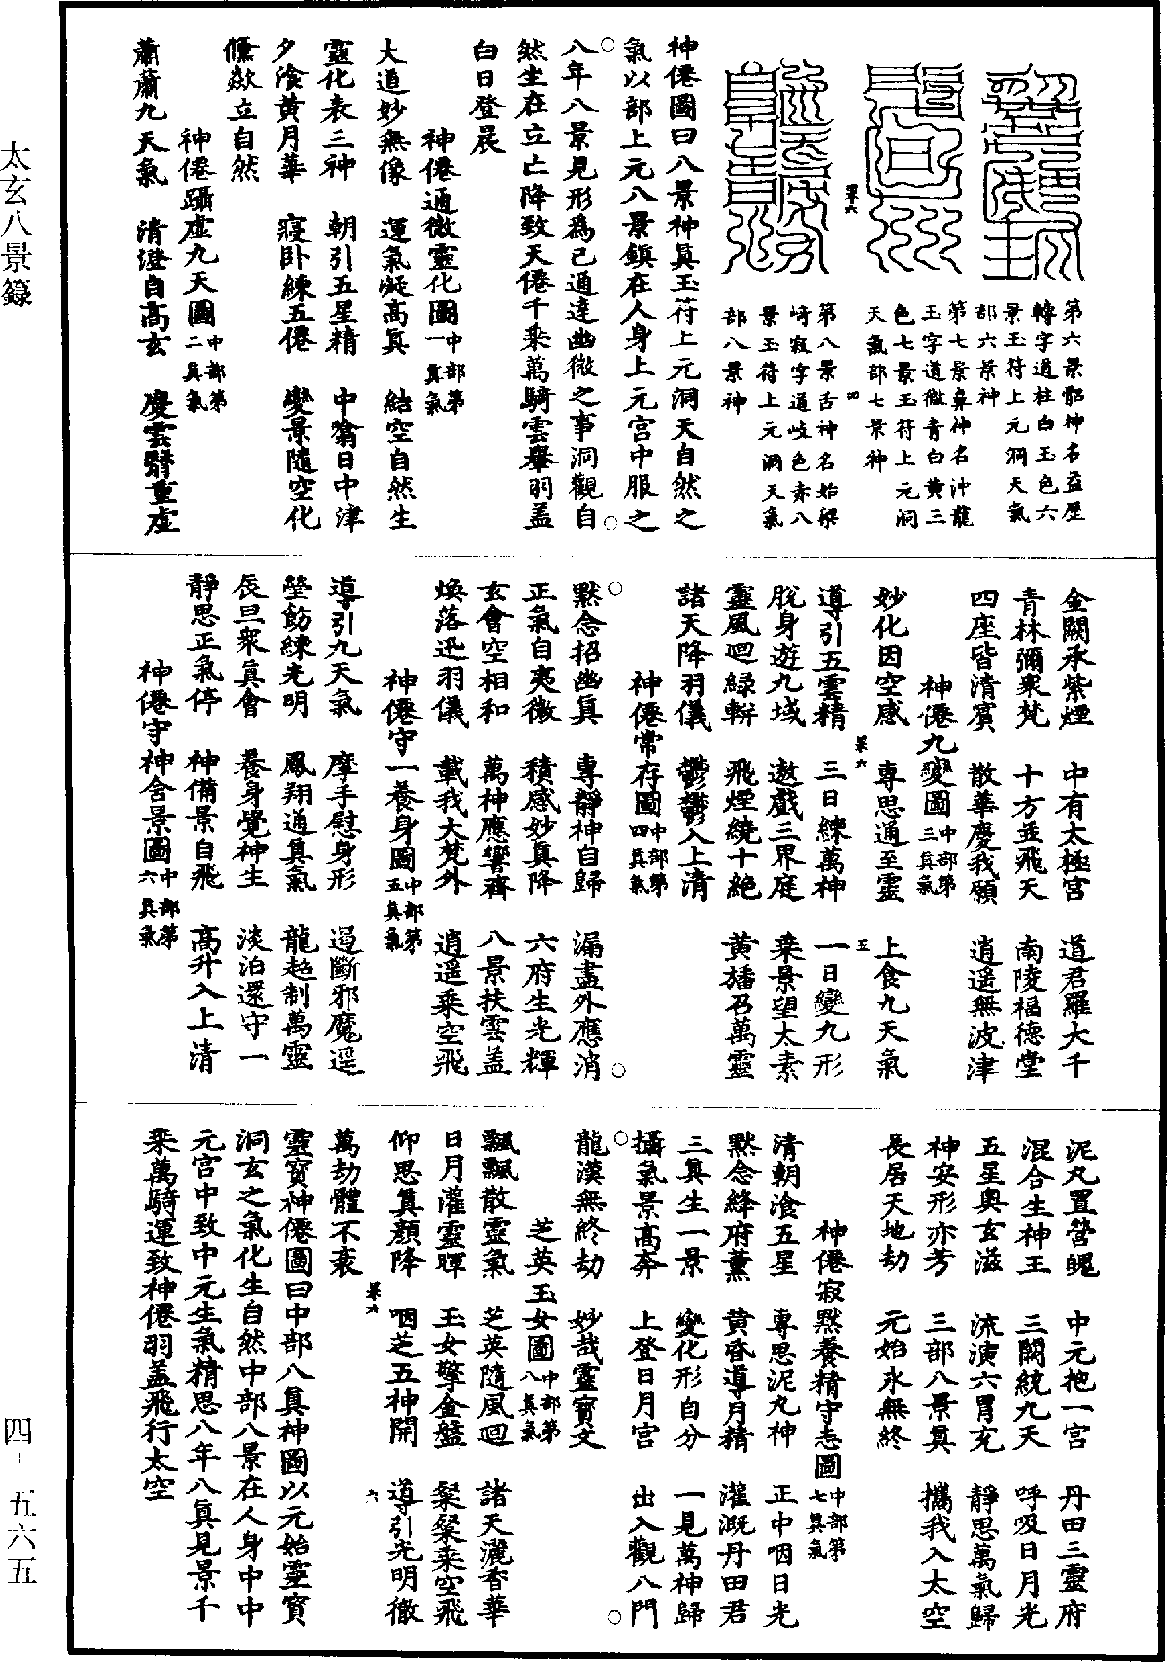 太玄八景籙
四‧五六五
第六景骷神名益歷
轉字道柱白玉色六
景玉符上元洞天氣
部六景神
第七景鼻神名沖龍
玉字道微青白黃三
色七景玉符上元洞
天氣部七景神
第八景舌神名始梁
峙寂字道岐色赤八
景玉符上元洞天氣
部八景神
神僊圖曰八景神真玉符上元洞天自然之
氣以部上元八景鎮在人身上元宮中服之
八年八景見形為己通達幽微之事洞觀自
然坐在立亡降致天僊千乘萬騎雲轝羽蓋
白日登晨
神僊通微靈化圖中部第一真氣
大道妙無像 運氣凝高真 結空自然生
靈化表三神 朝引五星精 中噏日中津
夕湌黃月華 寢卧練五僊 變景隨空化
儵欻立自然
神僊躡虛九天圖中部第二真氣
蕭蕭九天氣 清澄自高玄 慶雲翳重虛
金闕承紫煙 中有太極宮 道君羅大千
青林彌衆梵 十方並飛天 南陵福德堂
四座皆清賓 散華慶我願 逍遥無波津
神僊九變圖中部第三真氣
妙化因空感 專思通至靈 上食九天氣
導引五雲精 三日練萬神 一日變九形
脫身遊九域 遨戲三界庭 乘景望太素
靈風迴綠軿 飛煙繞十絕 黃旛召萬靈
諸天降羽儀 鬱鬱入上清
神僊常存圖中部第四真氣
默念招幽真 專靜神自歸 漏盡外應消
正氣自夷微 積感妙真降 六府生光輝
玄會空相和 萬神應響齊 八景扶雲蓋
煥落迅羽儀 載我大梵外 逍遥乘空飛
神僊守一養身圖中部第五真氣
導引九天氣 摩手慰身形 遏斷邪魔遥
瑩飭練光明 鳳翔通真氣 龍超制萬靈
辰旦衆真會 養身覺神生 淡泊還守一
靜思正氣停 神備景自飛 高升入上清
神僊守神含景圖中部第六真氣
泥丸置營魄 中元抱一宮 丹田三靈府
混合生神王 三關統九天 呼吸日月光
五星奧玄滋 流演六胃充 靜思萬氣歸
神安形亦芳 三部八景真 攜我入太空
長居天地劫 元始永無終
神僊寂默養精守志圖中部第七真氣
清朝湌五星 專思泥丸神 正中咽日光
默念絳府薰 黃昏導月精 灌溉丹田君
三真生一景 變化形自分 一見萬神歸
攝氣景高奔 上登日月宮 出入觀八門
龍漢無終劫 妙哉靈寶文
芝英玉女圖中部第八真氣
飄飄散靈氣 芝英隨風迴 諸天灑香華
日月灌靈暉 玉女擎金盤 粲粲乘空飛
仰思真顏降 咽芝五神開 導引光明徹
萬劫體不衰
靈寶神僊圖曰中部八真神圖以元始靈寶
洞玄之氣化生自然中部八景在人身中中
元宮中致中元生氣精思八年八真見景千
乘萬騎運致神僊羽蓋飛行太空